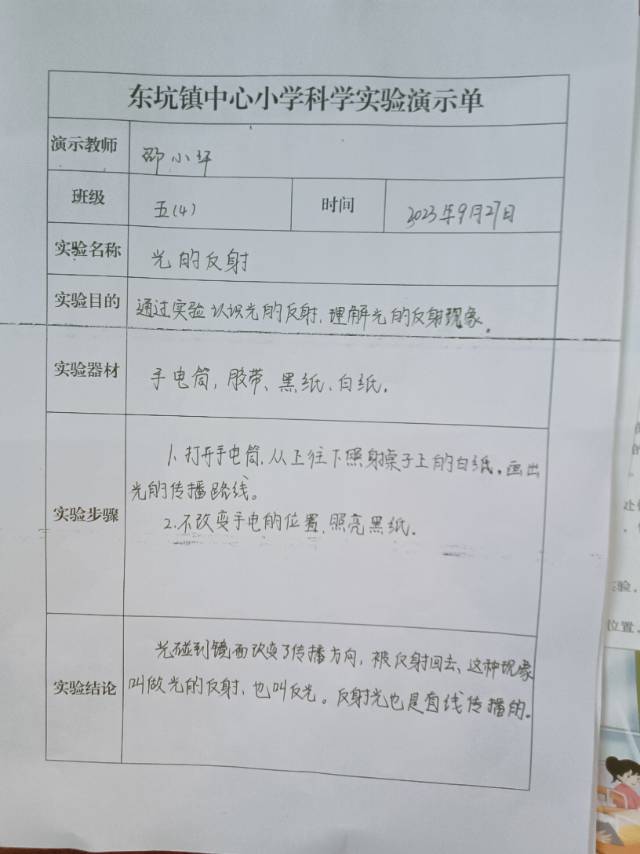 东坑镇中心小学科学实验演示单
演示教师 邵小环
班级 五(4) 时间 2023年9月27日
实验名称 光的反射
实验目的 通过实验认识光的反射,理解光的反射现象。
实验器材 手电筒,胶带、黑纸、白纸。
实验步骤
1.打开手电筒,从上往下照射桌子上的白纸。画出
光的传播路线。
2.不改变手电的位置,照亮黑纸。
实验结论
光碰到镜面改变了传播方向,被反射回去、这种现象
叫做光的反射,也叫反光。反射光也是直线传播的。
位置,